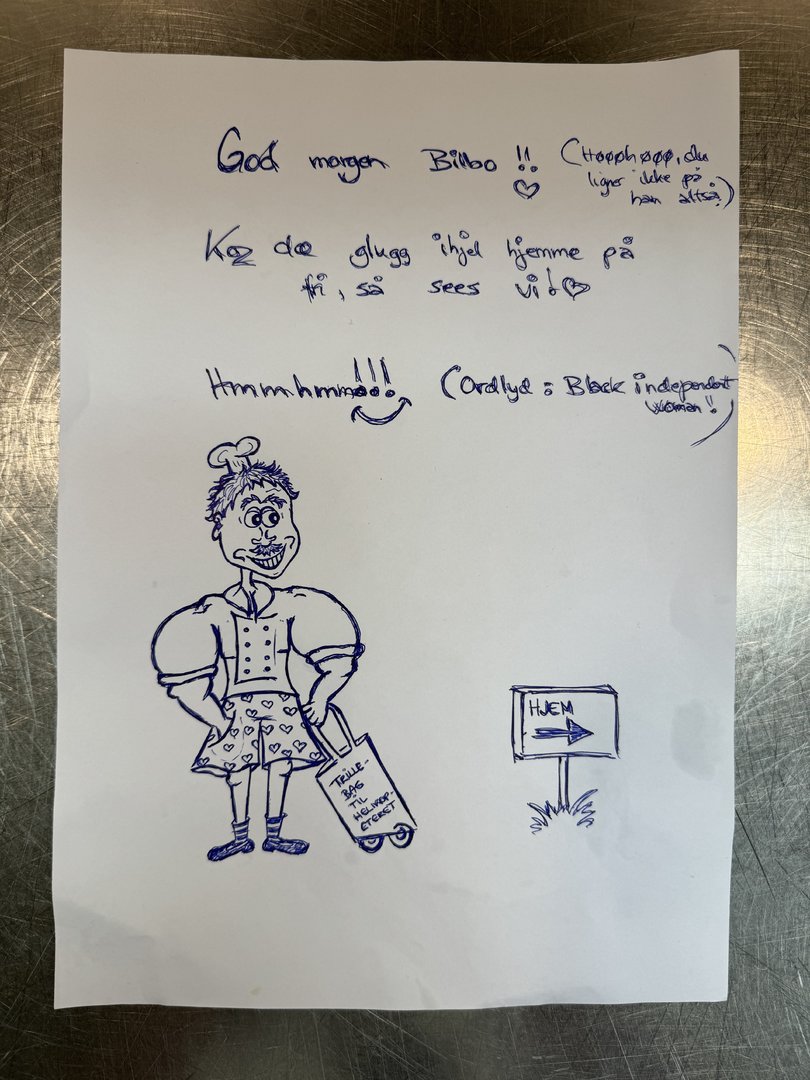 God morgen Bilbo !! ♡ (Høøøhøøø, du
ligner ikke på
han altså!)
Koz de glugg ihjel hjemme på
fri, så sees vi! ♡
Hmmhmmmm!!! (Ordlyd : Black independent
woman !!)
TRILLE-
BAG
TIL
HELIKOP-
ETERET
HJEM